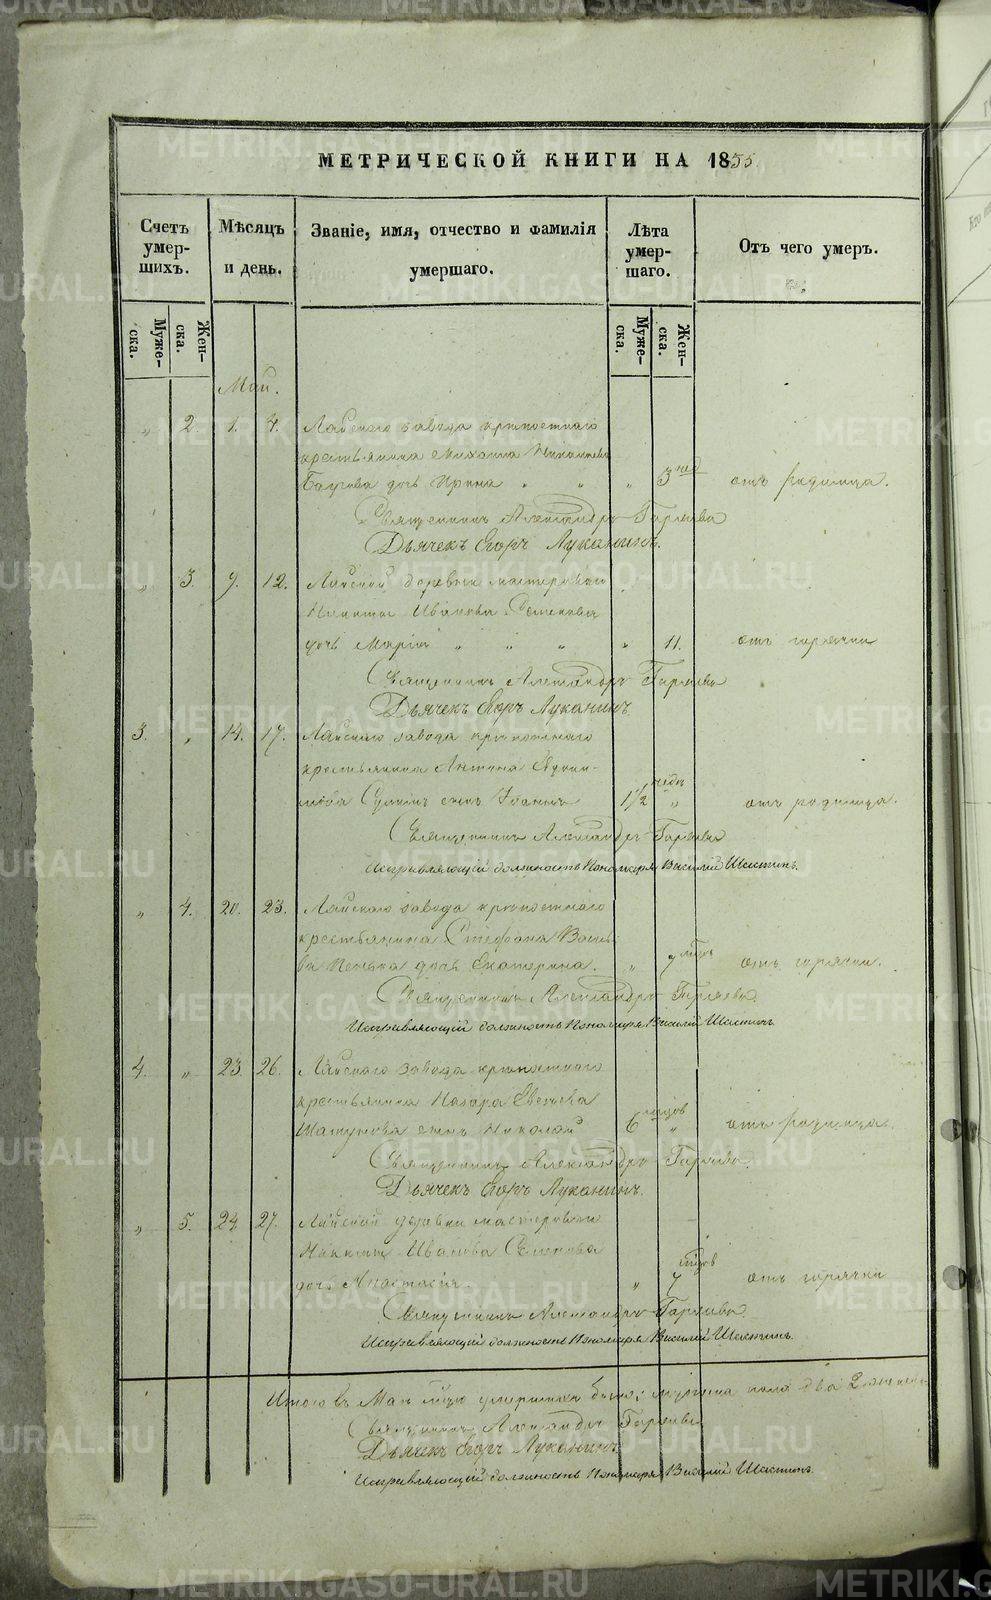 МЕТРИЧЕСКОЙ КНИГИ НА 1855.
Счетъ умер-шихъ.
Мѣсяцъ и день.
Званіе, имя, отчество и фамилія умершаго.
Лѣта умер-шаго.
Отъ чего умеръ.
Муже-ска.
Жен-ска.
Муже-ска.
Жен-ска.
Май.
„ 2. 1. 4. Лайскаго завода крѣпостнаго
крестьянина Михаила
дочь Ирина „ „ „ 3 нед отъ родимца.
Священникъ Александръ
Дьячекъ Егоръ Луканинъ.
„ 3. 9. 12. Лайской деревни мастероваго
Никиты Иванова Семенова
дочь Марія „ „ „ „ 11. отъ горячки
Священникъ Александръ
Дьячекъ Егоръ Луканинъ
3. „ 14. 17. Лайскаго завода крѣпостнаго
крестьянина Антона
сынъ Іоаннъ 1 1/2 недѣ „ отъ родимца.
Священникъ Александръ
Исправляющій должность Пономаря Василій Шастинъ.
„ 4. 20. 23. Лайскаго завода крѣпостнаго
крестьянина Стефана
дочь Екатерина. „ 7 отъ горячки.
Священникъ Александръ
Исправляющій должность Пономаря Василій Шастинъ.
4. „ 23. 26. Лайскаго завода крѣпостнаго
крестьянина Назара
сынъ Николай 6 „ отъ родимца.
Священникъ Александръ
Дьячекъ Егоръ Луканинъ.
„ 5. 24. 27. Лайской деревни мастероваго
Никиты Иванова Семенова
дочь Анастасія „ 7 отъ горячки
Священникъ Александръ
Исправляющій должность Пономаря Василій Шастинъ.
Итого въ Маѣ умершихъ было: мужеска пола два 2
Священникъ Александръ
Дьячекъ Егоръ Луканинъ
Исправляющій должность Пономаря Василій Шастинъ.
METRIKI.GASO-URAL.RU